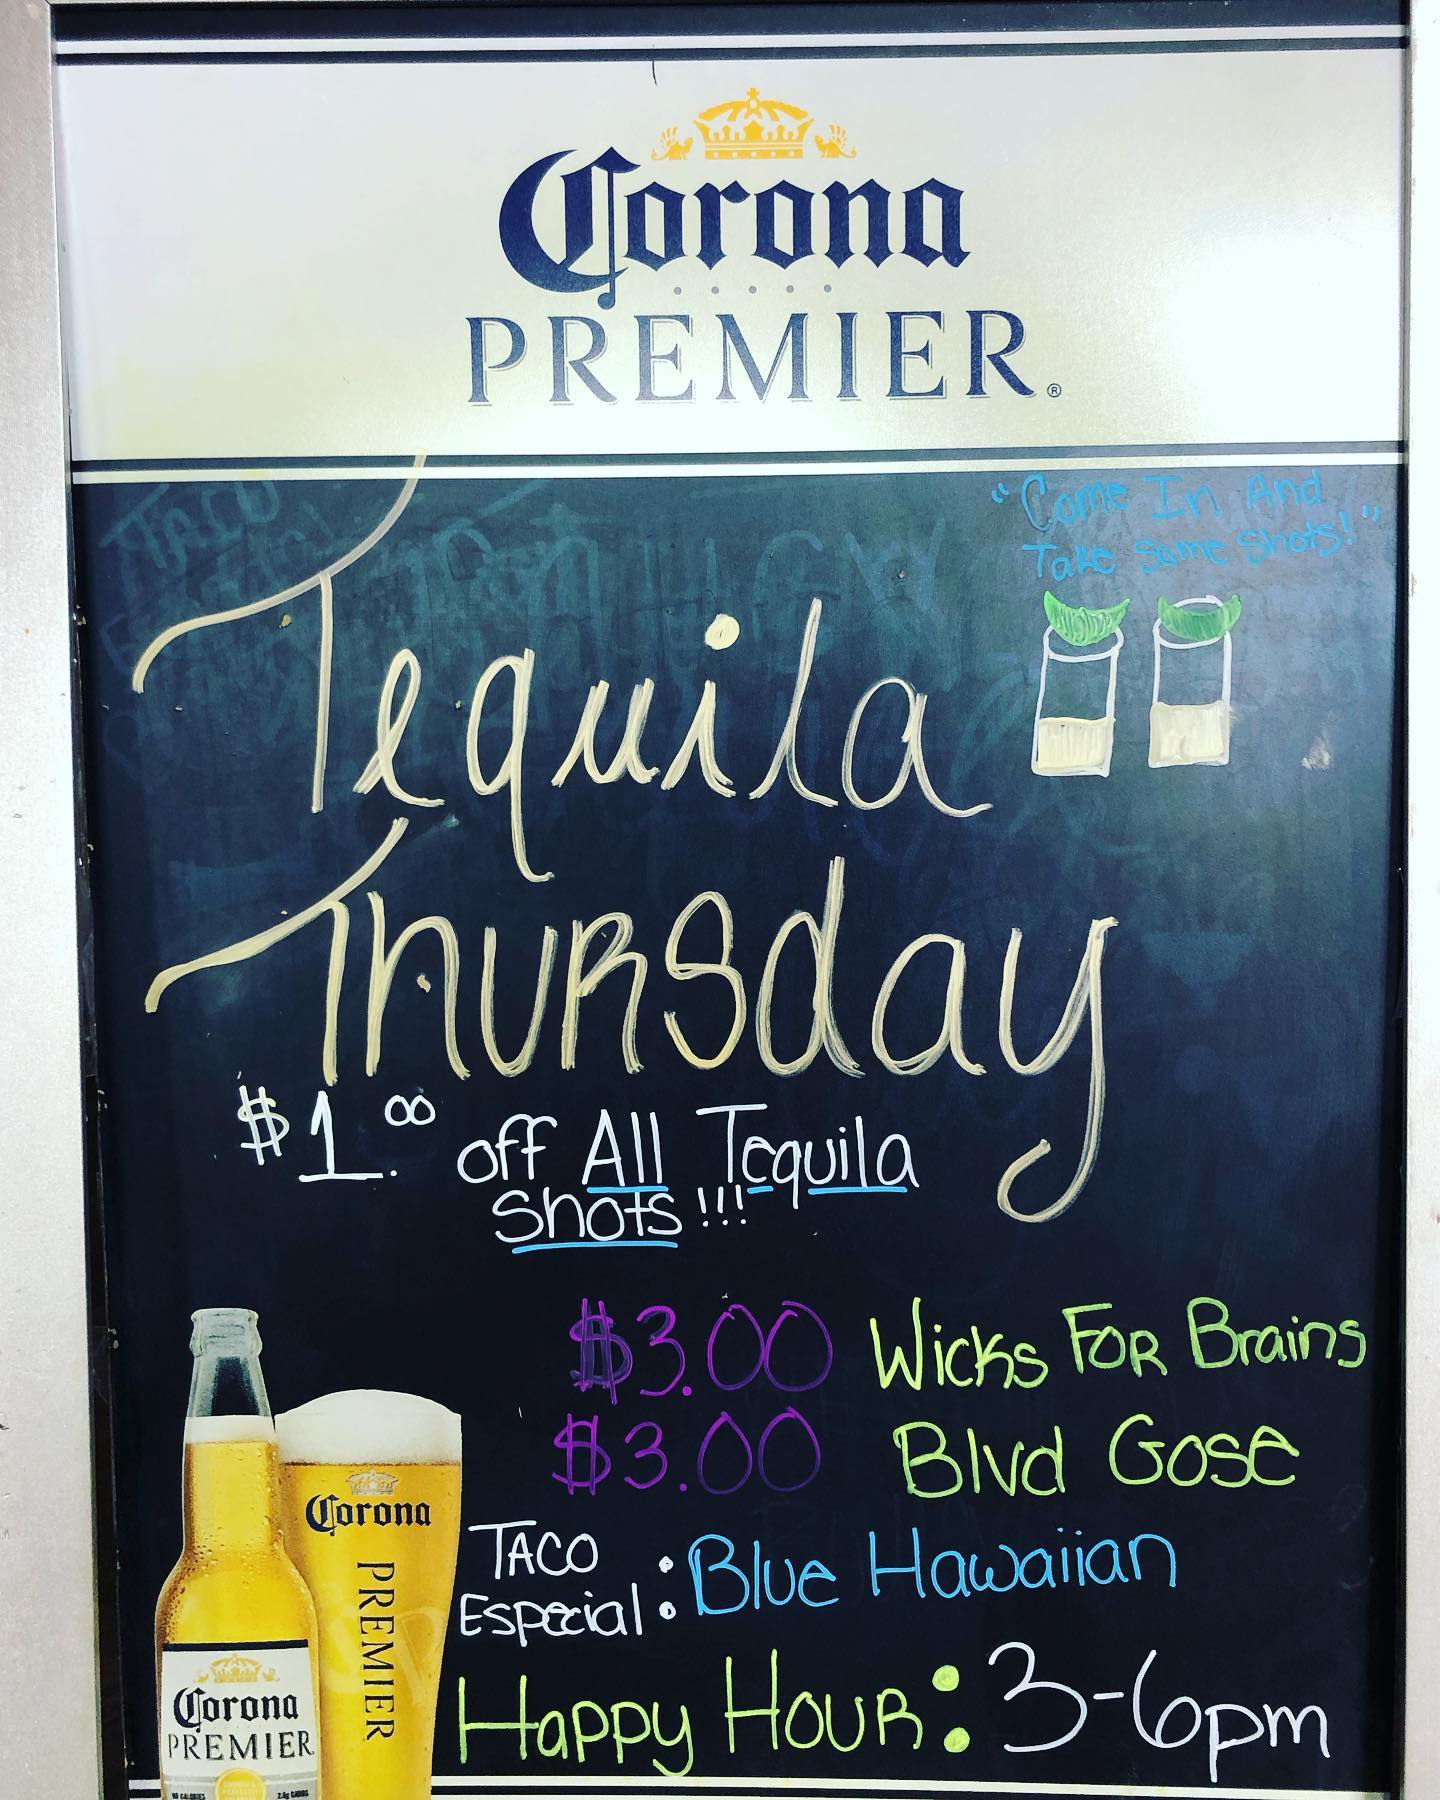 Corona
PREMIER®
"Come In And
Take Some Shots!"
Tequila
Thursday
$1.00 off All Tequila
Shots!!!
$3.00 Wicks FOR Brains
$3.00 Blvd Gose
TACO
Especial: Blue Hawaiian
Happy Hour: 3-6pm
Corona
PREMIER
Corona
PREMIER
90 CALORIES 2.6g CARBS